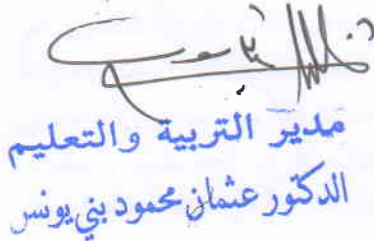 مدير التربية والتعليم
الدكتور عثمان محمود بني يونس